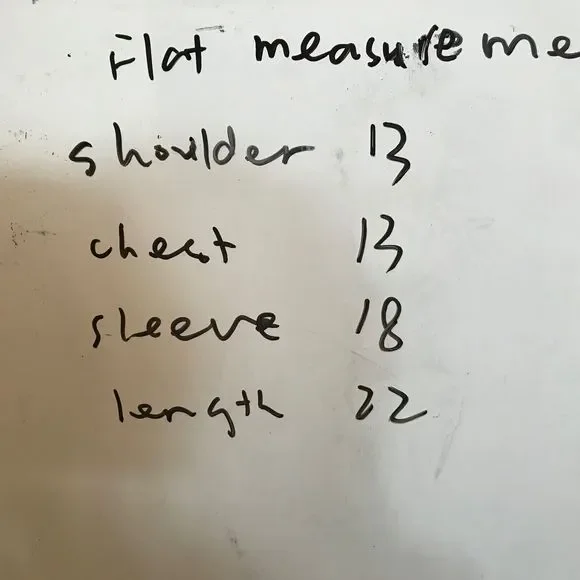 Flat measureme
shoulder 13
chest 13
sleeve 18
length 22